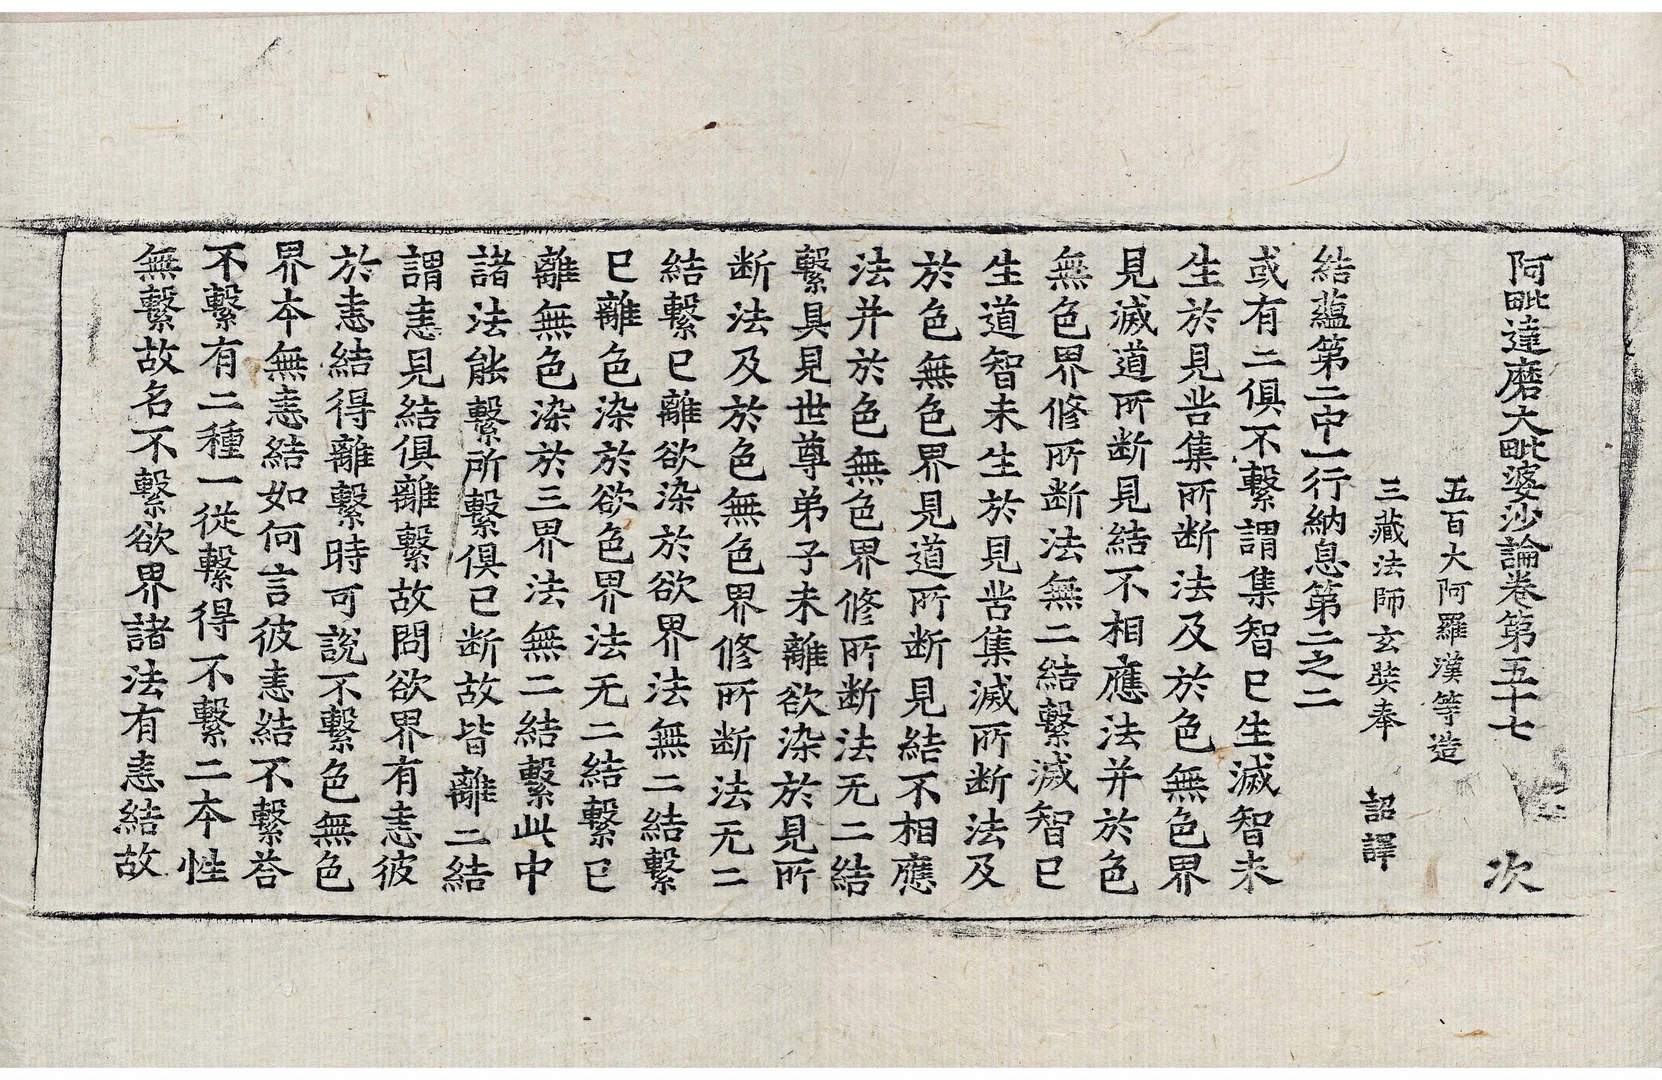 阿毗達磨大毗婆沙論卷第五十七 次
五百大阿羅漢等造
三藏法師玄奘奉 詔譯
結蘊第二中一行納息第二之二
或有二俱不繫謂集智已生滅智未
生於見苦集所断法及於色無色界
見滅道所断見結不相應法并於色
無色界修所断法無二結繫滅智已
生道智未生於見苦集滅所断法及
於色無色界見道所断見結不相應
法并於色無色界修所断法无二結
繫具見世尊弟子未離欲染於見所
断法及於色無色界修所断法无二
結繫已離欲染於欲界法無二結繫
已離色染於欲色界法无二結繫已
離無色染於三界法無二結繫此中
諸法能繫所繫俱已断故皆離二結
謂恚見結俱離繫故問欲界有恚彼
於恚結得離繫時可說不繫色無色
界本無恚結如何言彼恚結不繫荅
不繫有二種一從繫得不繫二本性
無繫故名不繫欲界諸法有恚結故